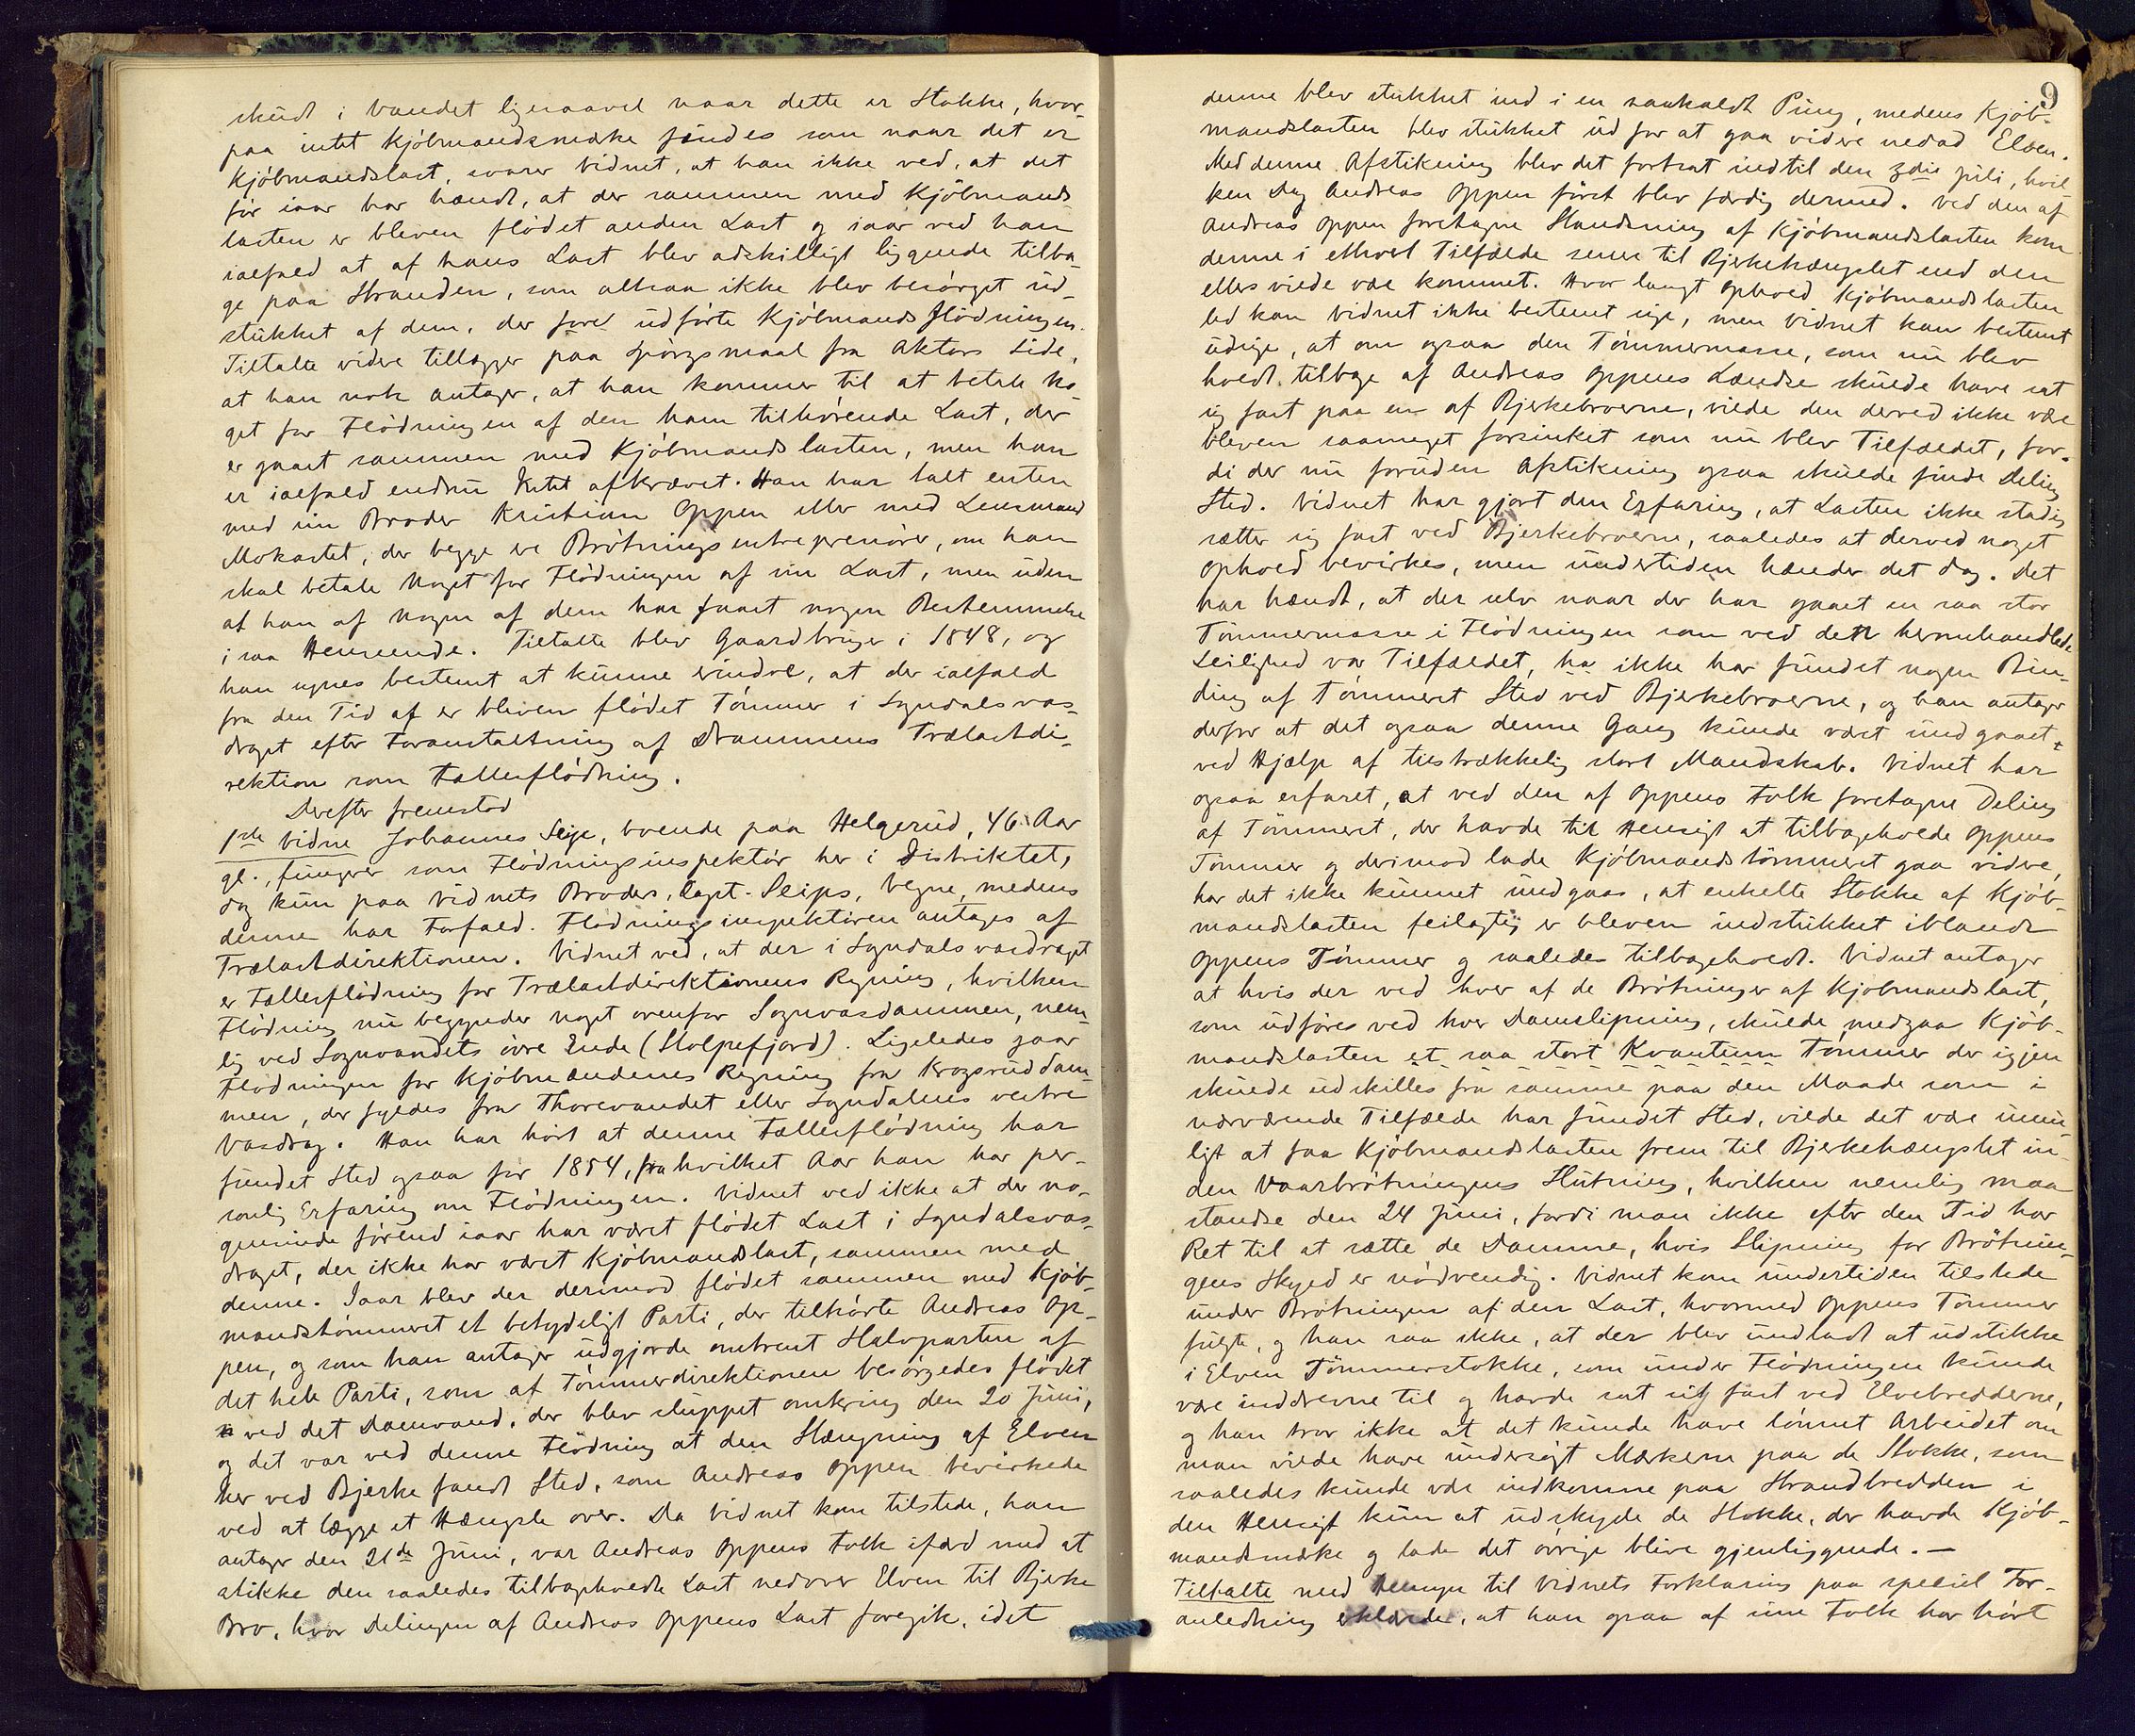 skudt i Vandet ligesaavel naar dette er Stokke, hvor-
paa intet Kjöbmandsmærke findes som naar det er
Kjöbmandslast, svarer Vidnet, at han ikke ved, at det
för iaar har hændt, at der sammen med Kjöbmands-
lasten er bleven flödet anden Last og iaar ved han
ialfald at af hans Last blev adskilligt liggende tilba-
ge paa Stranden, som altsaa ikke blev besörget ud-
stukket af dem, der forr udförte Kjöbmandsflödningen.
Tiltalte videre tillægger paa Spörgsmaal fra Aktors Side,
at han nok antager, at han kommer til at betale No-
get for Flödningen af den ham tilhörende Last, der
er gaaet sammen med Kjöbmandslasten, men han
er ialfald endnu Intet afkrævet. Han har talt enten
med sin Broder Kristian Oppen eller med Lensmand
Mokastet, der begge ere Brötningsentreprenörer, om han
skal betale Noget for Flödningen af sin Last, men uden
at han af Nogen af dem har faaet nogen Bestemmelse
i saa Henseende. Tiltalte blev Gaardbruger i 1848, og
han synes bestemt at kunne erindre, at der ialfald
fra den Tid af er bleven flödet Tömmer i Lyndalsvas-
draget efter Foranstaltning af Drammens Trælastdi-
rektion som Fællesflödning.
Derefter fremstod
1ste Vidne Johannes Seip, boende paa Helgerud, 46 Aar
gl., fungerer som Flödningsinspektör her i Distriktet,
dog kun paa Vidnets Broders, Capt. Seips, Vegne, medens
denne har Forfald. Flödningsinspektören antages af
Trælastdirektionen. Vidnet ved, at der i Lyndalsvasdraget
er Fællesflödning for Trælastdirektionens Regning, hvilken
Flödning nu begynder noget ovenfor Sognvasdammen, nem-
lig ved Sognvandets övre Ende (Stolpefjord). Ligeledes gaar
Flödningen for Kjöbmændenes Regning fra Krogsruddam-
men, der fyldes fra Thorevandet eller Lyndalens vestre
Vasdrag. Han har hört at denne Fællesflödning har
fundet Sted ogsaa før 1854, fra hvilket Aar han har per-
sonlig Erfaring om Flödningen. Vidnet ved ikke at der no-
gensinde förend iaar har været flödet Last i Lyndalsvas-
draget, der ikke har været Kjöbmandslast, sammen med
denne. Iaar blev der derimod flödet sammen med Kjöb-
mandstömmeret et betydeligt Parti, der tilhörte Andreas Op-
pen, og som han antager udgjorde omtrent Halvparten af
det hele Parti, som af Tömmerdirektionen besörgedes flödet
ved det Damvand, der blev sluppet omkring den 20 Juni,
og det var ved denne Flödning at den Stængning af Elven
her ved Bjerke fandt Sted, som Andreas Oppen bevirkede
ved at lægge et Hængsle over. Da Vidnet kom tilstede, han
antager den 21de Juni, var Andreas Oppens Folk ifærd med at
stikke den saaledes tilbageholdte Last nedover Elven til Bjerke
Bro, hvor Delingen af Andreas Oppens Last foregik, idet
9
denne blev stukket ind i en saakaldt Pung, medens Kjöb-
mandslasten blev stukket ud for at gaa videre nedad Elven.
Med denne Afstikning blev det fortsat indtil den 3die Juli, hvil-
ken Dag Andreas Oppen först blev færdig dermed. Ved den af
Andreas Oppen foretagne Standsning af Kjöbmandslasten kom
denne i ethvert Tilfælde senere til Bjerkehængslet end den
ellers vilde være kommet. Hvor langt Ophold Kjöbmandslasten
led kan Vidnet ikke bestemt sige, men Vidnet kan bestemt
udsige, at om ogsaa den Tömmermasse, som nu blev
holdt tilbage af Andreas Oppens Lændse skulde have sat
sig fast paa en af Bjerkebroerne, vilde den derved ikke være
bleven saameget forsinket som nu blev Tilfældet, for-
di der nu foruden Afstikning ogsaa skulde finde Deling
Sted. Vidnet har gjort den Erfaring, at Lasten ikke stadig
sætter sig fast ved Bjerkebroerne, saaledes at derved noget
Ophold bevirkes, men undertiden hænder det dog. Det
har hændt, at der selv naar der har gaaet en saa stor
Tömmermasse i Flödningen som ved den heromhandlede
Leilighed var Tilfældet, ikke har fundet nogen Bin-
ding af Tömmeret Sted ved Bjerkebroerne, og han antager
derfor at det ogsaa denne Gang kunde været undgaaet
ved Hjælp af tilstrækkelig stort Mandskab. Vidnet har
ogsaa erfaret, at ved den af Oppens Folk foretagne Deling
af Tömmeret, der havde til Hensigt at tilbageholde Oppens
Tömmer og derimod lade Kjöbmandstömmeret gaa videre,
har det ikke kunnet undgaaes, at enkelte Stokke af Kjöb-
mandslasten feilagtig er bleven indstukket iblandt
Oppens Tömmer og saaledes tilbageholdt. Vidnet antager
at hvis der ved hver af de Brötninger af Kjöbmandslast,
som udföres ved hver Damslipning, skulde medgaa Kjöb-
mandslasten et saa stort Kvantum Tömmer der igjen
skulde udskilles fra samme paa den Maade som i
nærværende Tilfælde har fundet Sted, vilde det være umu-
ligt at faa Kjöbmandslasten frem til Bjerkehængslet in-
den Vaarbrötningens Slutning, hvilken nemlig maa
standse den 24 Juni, fordi man ikke efter den Tid har
Ret til at sætte de Damme, hvis Slipning for Brötnin-
gens Skyld er nödvendig. Vidnet kom undertiden tilstede
under Brötningen af den Last, hvormed Oppens Tömmer
fulgte, og han saa ikke, at der blev undladt at udstikke
i Elven Tömmerstokke, som under Flödningen kunde
være inddrevne til og havde sat sig fast ved Elvebredderne,
og han tror ikke at det kunde have lönnet Arbeidet om
man vilde have undersögt Mærkerne paa de Stokke, som
saaledes kunde være indkomne paa Strandbredden i
den Hensigt kun at udskyde de Stokke, der havde Kjöb-
mandsmærke og lade det övrige blive gjenliggende. —
Tiltalte med Hensyn til Vidnets Forklaring paa speciel For-
anledning erklærede, at han ogsaa af sine Folk har hört